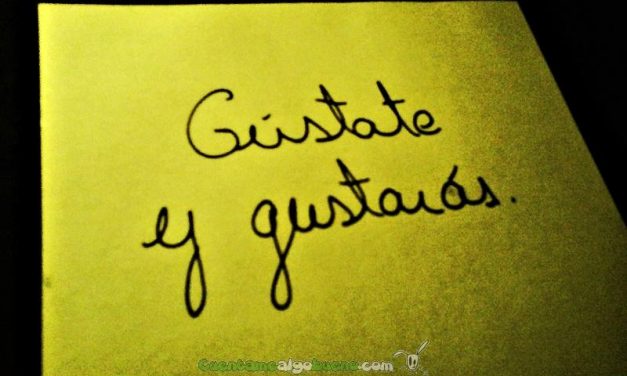 Gústate
y gustarás.
Cuentamealgobueno.com